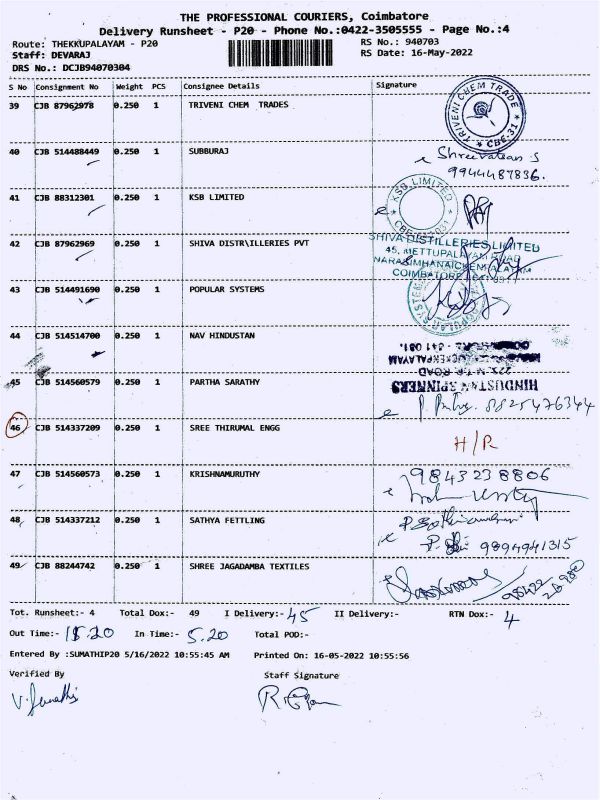 THE PROFESSIONAL COURIERS, Coimbatore
Delivery Runsheet - P20 - Phone No.:0422-3505555 - Page No.:4
Route: THEKKUPALAYAM - P20
RS No.: 940703
Staff: DEVARAJ
RS Date: 16-May-2022
DRS No.: DCJB94070304
S No Consignment No Weight PCS Consignee Details Signature
39 CJB 87962978 0.250 1 TRIVENI CHEM TRADES
TRIVENI CHEM TRADE * CBE.31 *
40 CJB 514488449 0.250 1 SUBBURAJ
9944487836.
41 CJB 88312301 0.250 1 KSB LIMITED
KSB LIMITED
42 CJB 87962969 0.250 1 SHIVA DISTR\ILLERIES PVT
SHIVA DISTILLERIES LIMITED
45, METTUPALAYAM ROAD
COIMBATORE
43 CJB 514491690 0.250 1 POPULAR SYSTEMS
44 CJB 514514700 0.250 1 NAV HINDUSTAN
HINDUSTAN SPINNERS
45 CJB 514560579 0.250 1 PARTHA SARATHY
8825476344
46 CJB 514337209 0.250 1 SREE THIRUMAL ENGG
H/R
47 CJB 514560573 0.250 1 KRISHNAMURUTHY
9843238806
48 CJB 514337212 0.250 1 SATHYA FETTLING
9894941315
49 CJB 88244742 0.250 1 SHREE JAGADAMBA TEXTILES
Tot. Runsheet:- 4 Total Dox:- 49 I Delivery:- 45 II Delivery:- RTN Dox:- 4
Out Time:- In Time:- 5.20 Total POD:-
Entered By :SUMATHIP20 5/16/2022 10:55:45 AM Printed On: 16-05-2022 10:55:56
Verified By Staff Signature